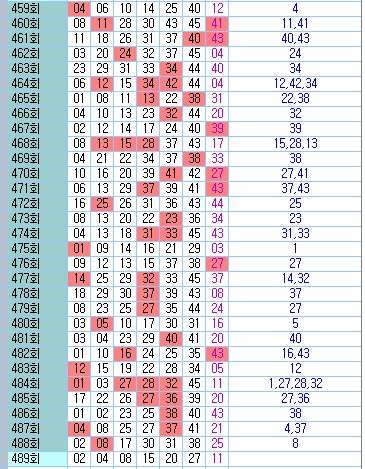 459회 04 06 10 14 25 40 12 4
460회 08 11 28 30 43 45 41 11,41
461회 11 18 26 31 37 40 43 40,43
462회 03 20 24 32 37 45 04 24
463회 23 29 31 33 34 44 40 34
464회 06 12 15 34 42 44 04 12,42,34
465회 01 08 11 13 22 38 31 22,38
466회 04 10 13 23 32 44 20 32
467회 02 12 14 17 24 40 39 39
468회 08 13 15 28 37 43 17 15,28,13
469회 04 21 22 34 37 38 33 38
470회 10 16 20 39 41 42 27 27,41
471회 06 13 29 37 39 41 43 37,43
472회 16 25 26 31 36 43 44 25
473회 08 13 20 22 23 36 34 23
474회 04 13 18 31 33 45 43 31,33
475회 01 09 14 16 21 29 03 1
476회 09 12 13 15 37 38 27 27
477회 14 25 29 32 33 45 37 14,32
478회 18 29 30 37 39 43 08 37
479회 08 23 25 27 35 44 24 27
480회 03 05 10 17 30 31 16 5
481회 03 04 23 29 40 41 20 40
482회 01 10 16 24 25 35 43 16,43
483회 12 15 19 22 28 34 05 12
484회 01 03 27 28 32 45 11 1,27,28,32
485회 17 22 26 27 36 39 20 27,36
486회 01 02 23 25 38 40 43 38
487회 04 08 25 27 37 41 21 4,37
488회 02 08 17 30 31 38 25 8
489회 02 04 08 15 20 27 11